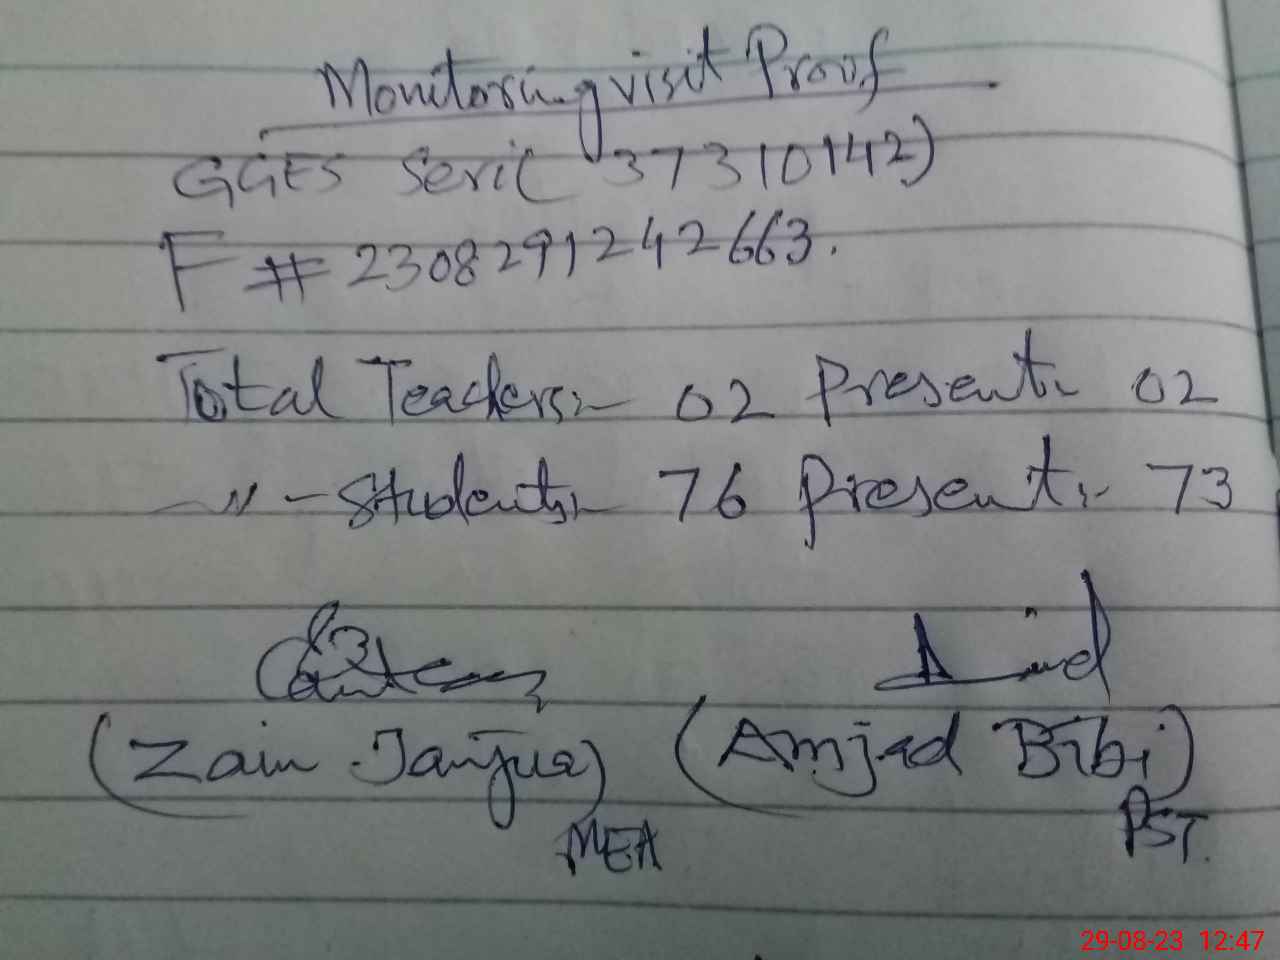 Monitoring visit Proof
GGES Seri( 37310142)
F # 2308291242663.
Total Teachers:- 02 Present:- 02
-"- Students:- 76 Present:- 73
(Zain Janjua) (Amjad Bibi)
MEA PST.
29-08-23 12:47